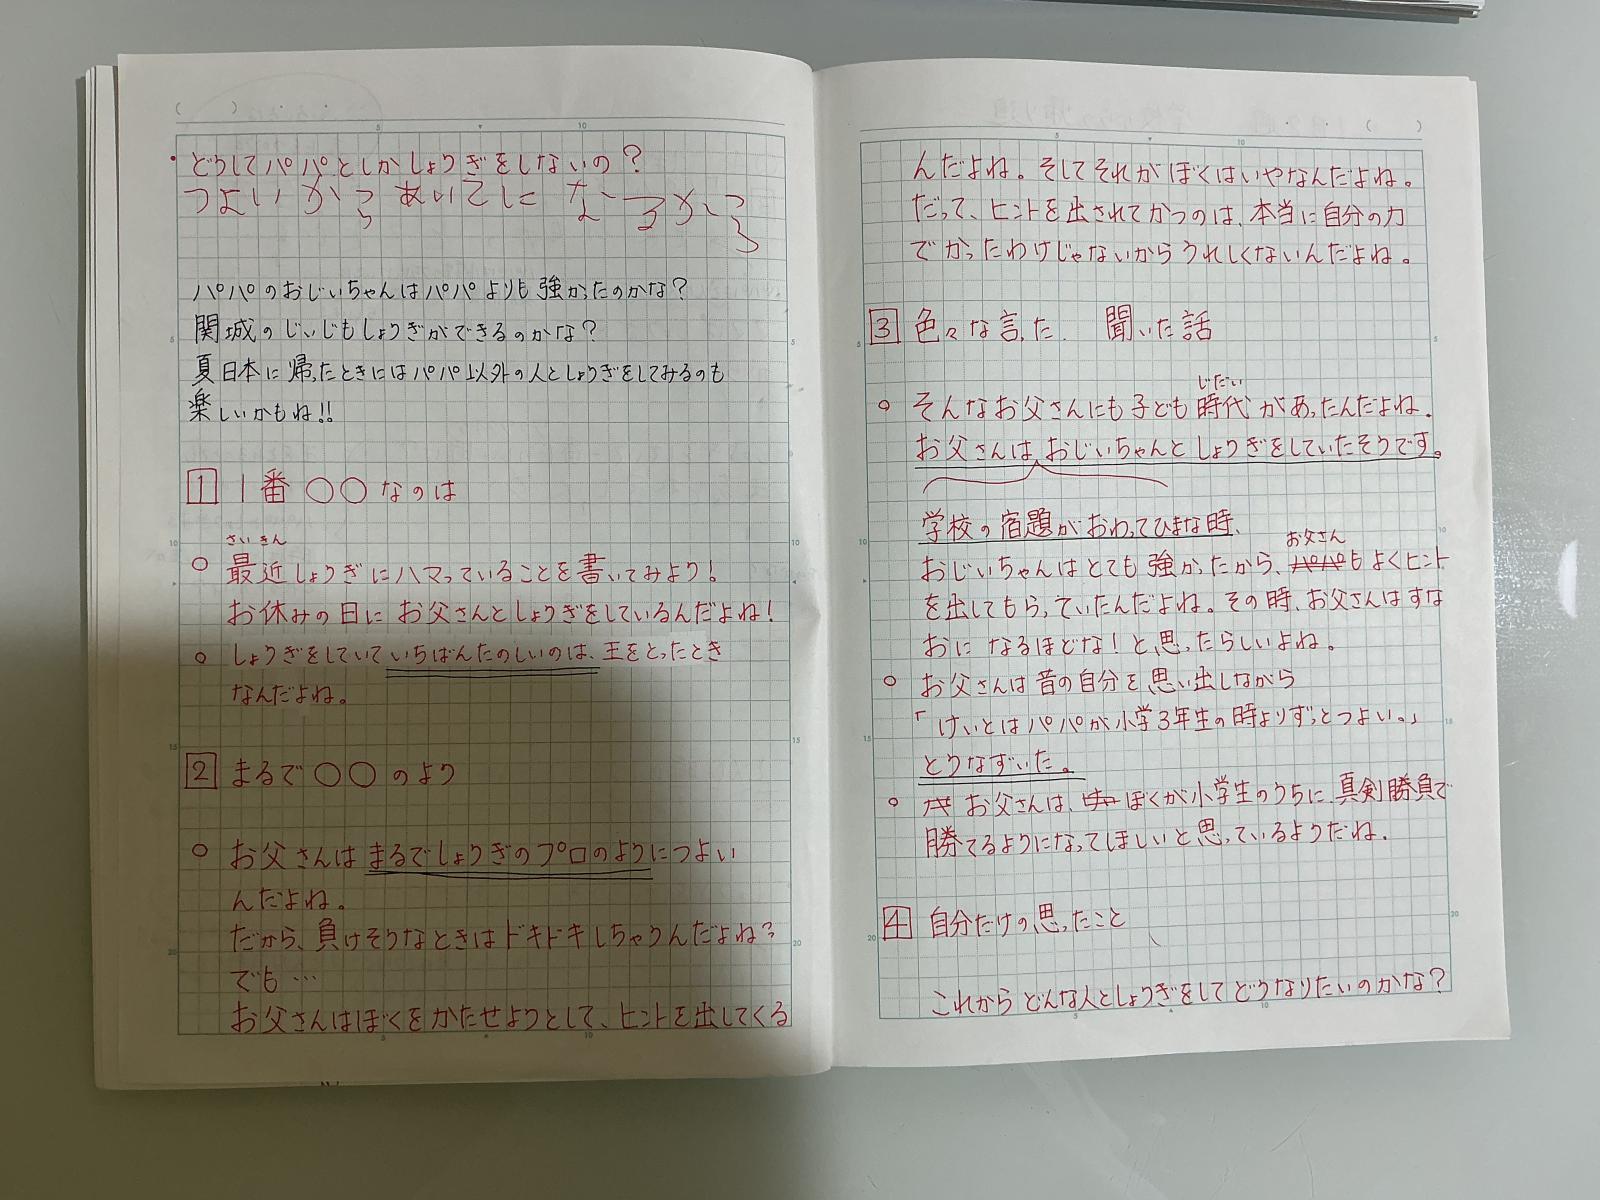 ・どうしてパパとしかしょうぎをしないの?
つよいから あいてに なるから
パパのおじいちゃんはパパよりも強かったのかな?
関城のじいじもしょうぎができるのかな?
夏日本に帰ったときにはパパ以外の人としょうぎをしてみるのも
楽しいかもね!!
1 1番 ○○ なのは
さいきん
○ 最近しょうぎにハマっていることを書いてみよう!
お休みの日に お父さんとしょうぎをしているんだよね!
○ しょうぎをしていていちばんたのしいのは、王をとったとき
なんだよね。
2 まるで ○○ のよう
○ お父さんはまるでしょうぎのプロのようにつよい
んだよね。
だから、負けそうなときはドキドキしちゃうんだよね?
でも…
お父さんはぼくをかたせようとして、ヒントを出してくる
んだよね。そしてそれがぼくはいやなんだよね。
だって、ヒントを出されてかつのは、本当に自分の力
でかったわけじゃないからうれしくないんだよね。
3 色々な言った、聞いた話
じだい
○ そんなお父さんにも子ども時代があったんだよね。
お父さんはおじいちゃんとしょうぎをしていたそうです。
学校の宿題がおわってひまな時、
お父さん
おじいちゃんはとても強かったから、パパもよくヒント
を出してもらっていたんだよね。その時、お父さんはすな
おに なるほどな!と思ったらしいよね。
○ お父さんは昔の自分を思い出しながら
「けいとはパパが小学3年生の時よりずっとつよい。」
とうなずいた。
○ お父さんは、ぼくが小学生のうちに、真剣勝負で
勝てるようになってほしいと思っているようだね。
4 自分だけの思ったこと
これからどんな人としょうぎをしてどうなりたいのかな?